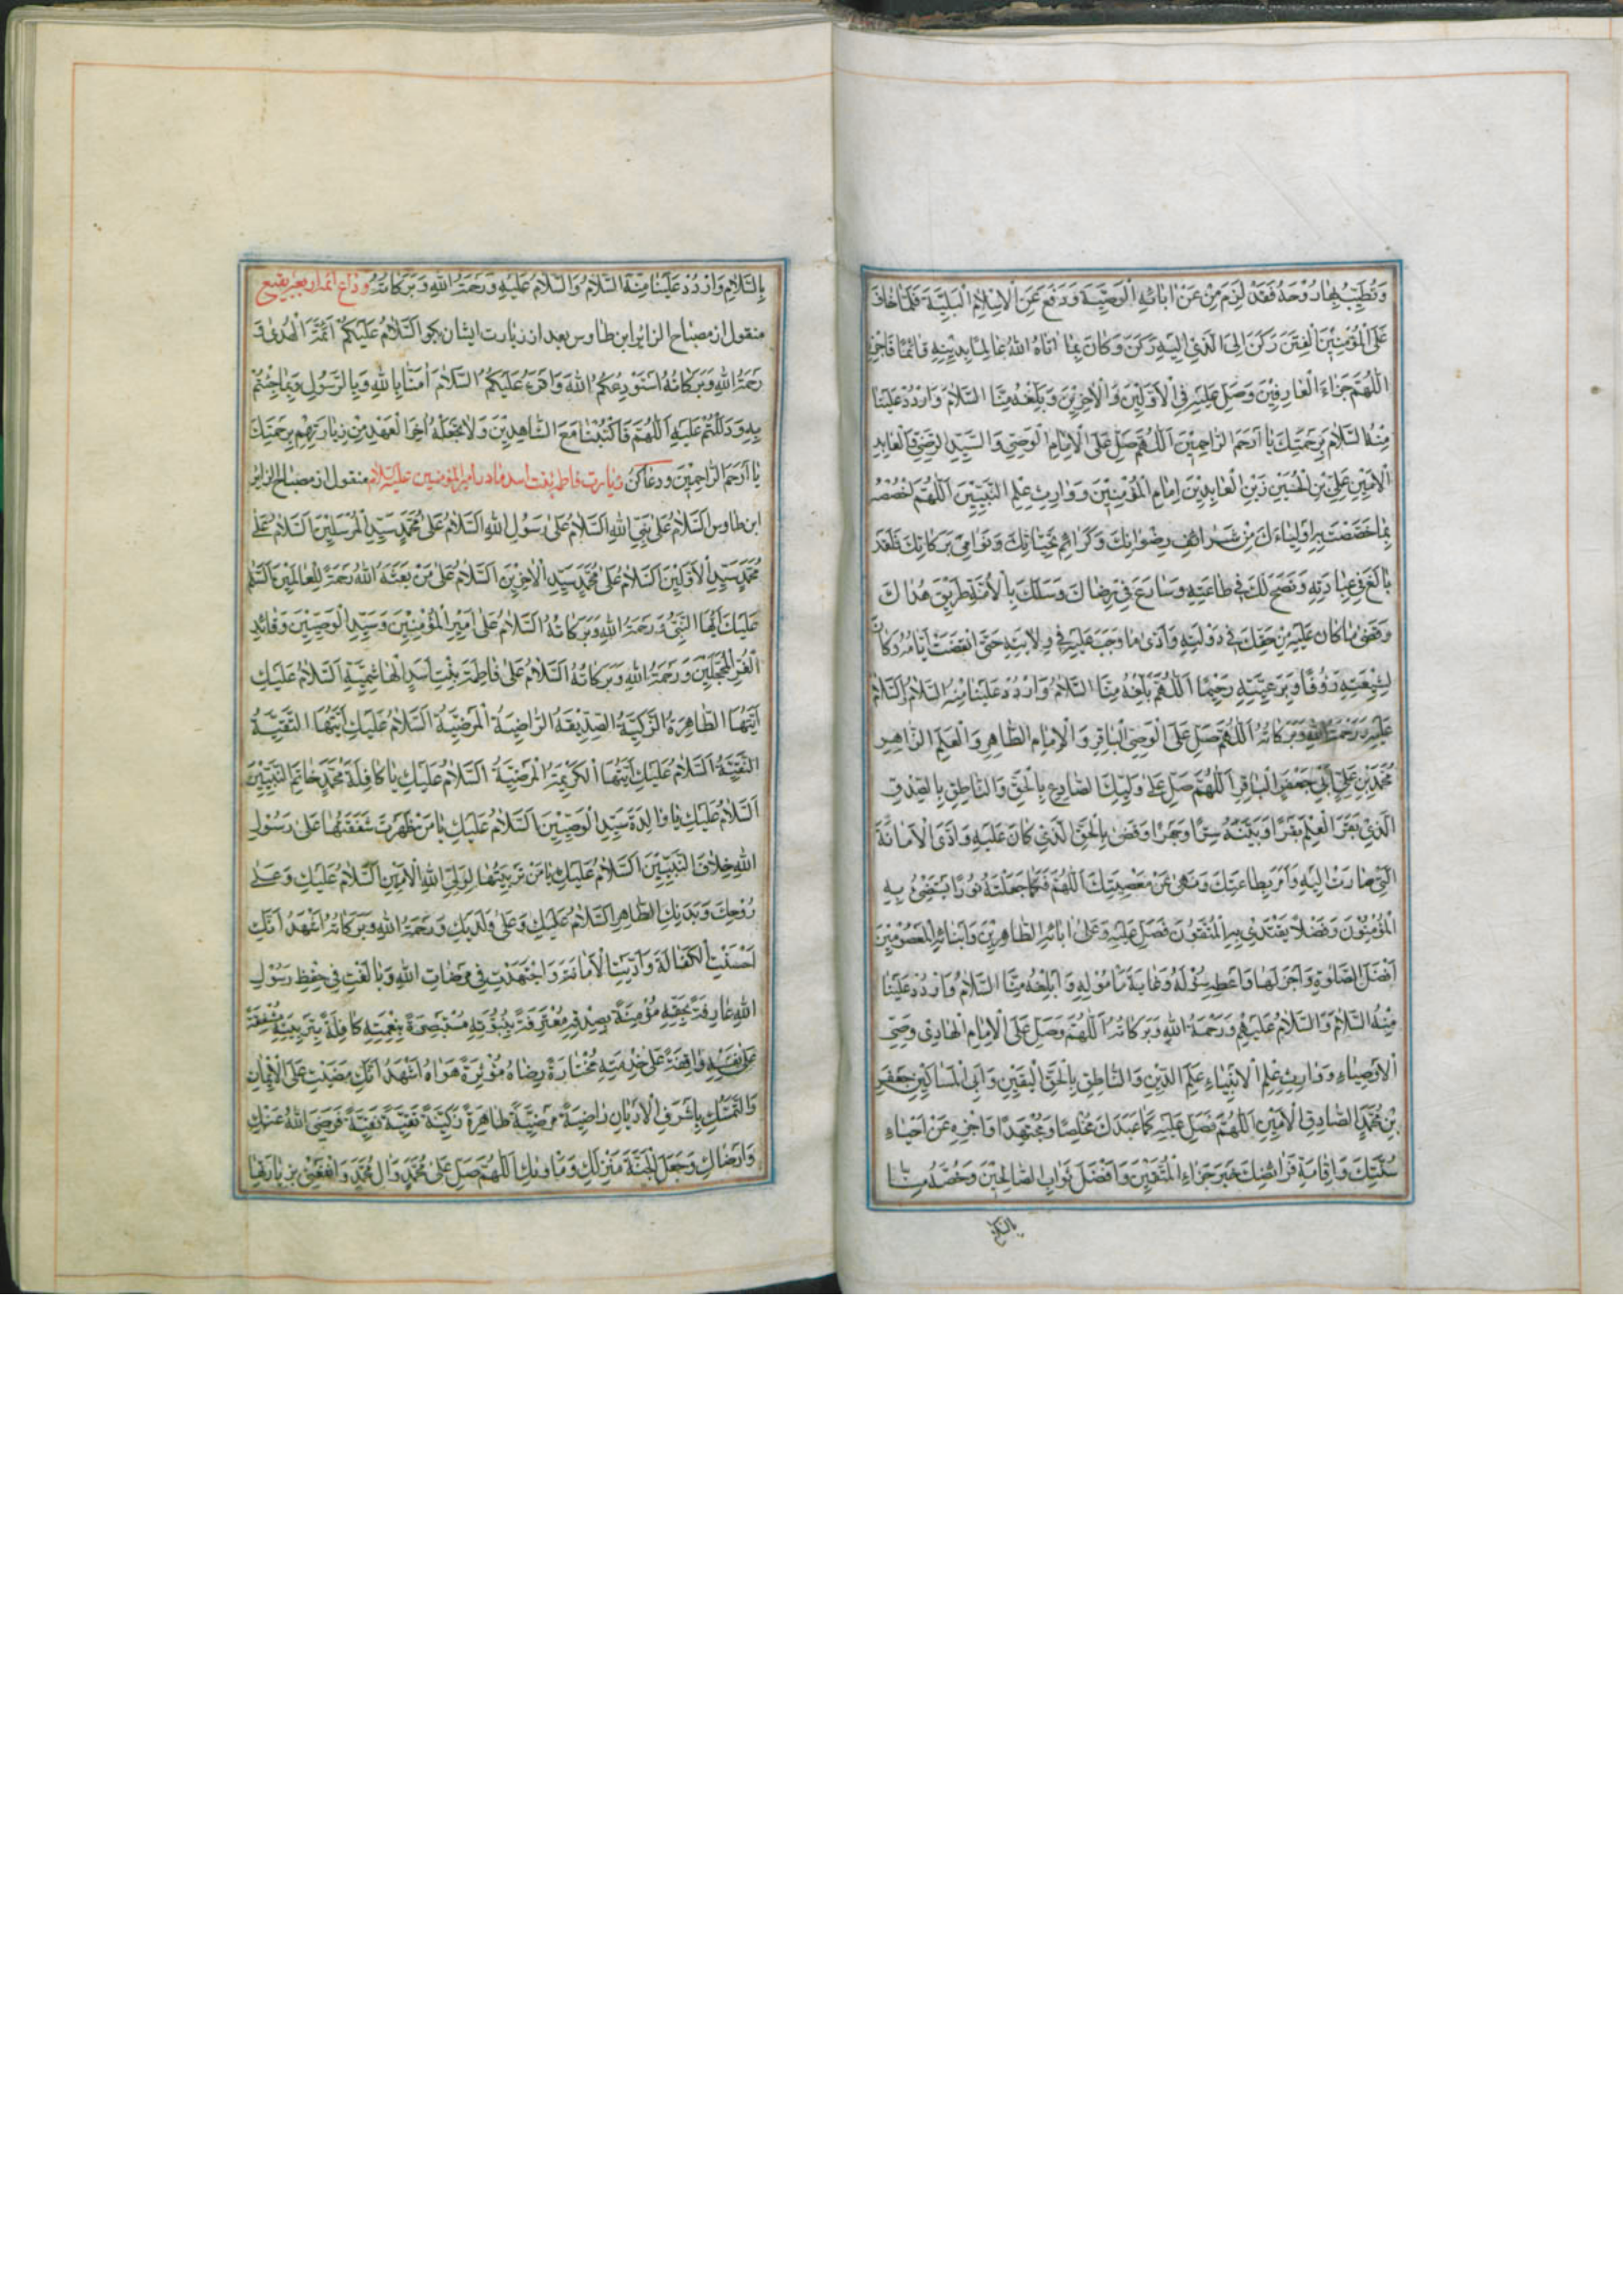 وَتُطَيِّبُ بِهَا رُوْحَهُ فَقَدْ لَزِمَ مِنْ عَنْ اٰبَائِهِ الْوَصِيَّةَ وَدَفَعَ عَنِ الْاِسْلَامِ الْبَلِيَّةَ فَلَمَّا خَافَ
عَلَى الْمُؤْمِنِيْنَ الْفِتَنَ رَكَنَ اِلَى الَّذِيْ اِلَيْهِ رَكَنَ وَكَانَ بِمَا اٰتَاهُ اللهُ عَالِمًا بِدِيْنِهِ قَائِمًا فَاجْزِهِ
اَللّٰهُمَّ جَزَاءَ الْعَارِفِيْنَ وَصَلِّ عَلَيْهِ فِي الْاَوَّلِيْنَ وَالْاٰخِرِيْنَ وَبَلِّغْهُ مِنَّا السَّلَامَ وَارْدُدْ عَلَيْنَا
مِنْهُ السَّلَامَ بِرَحْمَتِكَ يَا اَرْحَمَ الرَّاحِمِيْنَ اَللّٰهُمَّ صَلِّ عَلَى الْاِمَامِ الْوَصِيِّ وَالسَّيِّدِ الرَّضِيِّ وَالْعَابِدِ
الْاَمِيْنِ عَلِيِّ بْنِ الْحُسَيْنِ زَيْنِ الْعَابِدِيْنَ اِمَامِ الْمُؤْمِنِيْنَ وَوَارِثِ عِلْمِ النَّبِيِّيْنَ اَللّٰهُمَّ اخْصُصْهُ
بِمَا خَصَصْتَ بِهِ اَوْلِيَاءَكَ مِنْ شَرَائِفِ رِضْوَانِكَ وَكَرَائِمِ تَحِيَّاتِكَ وَنَوَامِيْ بَرَكَاتِكَ فَلَقَدْ
بَالَغَ فِيْ عِبَادَتِهِ وَنَصَحَ لَكَ فِيْ طَاعَتِهِ وَسَارَعَ فِيْ رِضَاكَ وَسَلَكَ بِالْاُمَّةِ طَرِيْقَ هُدَاكَ
وَقَضٰى مَا كَانَ عَلَيْهِ مِنْ حَقِّكَ فِيْ دَوْلَتِهِ وَاَدّٰى مَا وَجَبَ عَلَيْهِ فِيْ وِلَايَتِهِ حَتّٰى انْقَضَتْ اَيَّامُهُ وَكَانَ
لِشِيْعَتِهِ رَؤُفًا وَبِرَعِيَّتِهِ رَحِيْمًا اَللّٰهُمَّ بَلِّغْهُ مِنَّا السَّلَامَ وَارْدُدْ عَلَيْنَا مِنْهُ السَّلَامَ وَالسَّلَامُ
عَلَيْهِ وَرَحْمَةُ اللهِ وَبَرَكَاتُهُ اَللّٰهُمَّ صَلِّ عَلَى الْوَصِيِّ الْبَاقِرِ وَالْاِمَامِ الطَّاهِرِ وَالْعَلَمِ الزَّاهِرِ
مُحَمَّدِ بْنِ عَلِيٍّ اَبِيْ جَعْفَرٍ الْبَاقِرِ اَللّٰهُمَّ صَلِّ عَلٰى وَلِيِّكَ الصَّادِعِ بِالْحَقِّ وَالنَّاطِقِ بِالصِّدْقِ
الَّذِيْ بَقَرَ الْعِلْمَ بَقْرًا وَبَيَّنَهُ سِرًّا وَجَهْرًا وَقَضٰى بِالْحَقِّ الَّذِيْ كَانَ عَلَيْهِ وَاَدَّى الْاَمَانَةَ
الَّتِيْ صَارَتْ اِلَيْهِ وَاَمَرَ بِطَاعَتِكَ وَنَهٰى عَنْ مَعْصِيَتِكَ اَللّٰهُمَّ فَكَمَا جَعَلْتَهُ نُوْرًا يَسْتَضِيْءُ بِهِ
الْمُؤْمِنُوْنَ وَفَضْلًا يَقْتَدِيْ بِهِ الْمُتَّقُوْنَ فَصَلِّ عَلَيْهِ وَعَلٰى اٰبَائِهِ الطَّاهِرِيْنَ وَاَبْنَائِهِ الْمَعْصُوْمِيْنَ
اَفْضَلَ الصَّلٰوةِ وَاَجْزَلَهَا وَاَعْطِهِ سُؤْلَهُ وَغَايَةَ مَأْمُوْلِهِ وَاَبْلِغْهُ مِنَّا السَّلَامَ وَارْدُدْ عَلَيْنَا
مِنْهُ السَّلَامَ وَالسَّلَامُ عَلَيْهِمْ وَرَحْمَةُ اللهِ وَبَرَكَاتُهُ اَللّٰهُمَّ وَصَلِّ عَلَى الْاِمَامِ الْهَادِيْ وَصِيِّ
الْاَوْصِيَاءِ وَوَارِثِ عِلْمِ الْاَنْبِيَاءِ عَلَمِ الدِّيْنِ وَالنَّاطِقِ بِالْحَقِّ الْيَقِيْنِ وَاَبِي الْمَسَاكِيْنِ جَعْفَرِ
بْنِ مُحَمَّدٍ الصَّادِقِ الْاَمِيْنِ اَللّٰهُمَّ فَصَلِّ عَلَيْهِ كَمَا عَبَدَكَ مُخْلِصًا وَمُجْتَهِدًا وَاجْزِهِ عَنْ اِحْيَاءِ
سُنَّتِكَ وَاِقَامَةِ فَرَائِضِكَ خَيْرَ جَزَاءِ الْمُتَّقِيْنَ وَاَفْضَلَ ثَوَابِ الصَّالِحِيْنَ وَخُصَّهُ مِنَّا
بالسَّلَامِ
بِالسَّلَامِ وَارْدُدْ عَلَيْنَا مِنْهُ السَّلَامَ وَالسَّلَامُ عَلَيْهِ وَرَحْمَةُ اللهِ وَبَرَكَاتُهُ وداع ائمه اربعه بقيع
منقول از مصباح الزاير ابن طاوس بعد از زيارت ايشان بگو اَلسَّلَامُ عَلَيْكُمْ اَئِمَّةَ الْهُدٰى وَ
رَحْمَةُ اللهِ وَبَرَكَاتُهُ اَسْتَوْدِعُكُمُ اللهَ وَاَقْرَءُ عَلَيْكُمُ السَّلَامَ اٰمَنَّا بِاللهِ وَبِالرَّسُوْلِ وَبِمَا جِئْتُمْ
بِهِ وَدَلَلْتُمْ عَلَيْهِ اَللّٰهُمَّ فَاكْتُبْنَا مَعَ الشَّاهِدِيْنَ وَلَا تَجْعَلْهُ اٰخِرَ الْعَهْدِ مِنْ زِيَارَتِهِمْ بِرَحْمَتِكَ
يَا اَرْحَمَ الرَّاحِمِيْنَ ودعا كن زيارت فاطمه بنت اسد مادر امير المؤمنين عليه السلام منقول از مصباح الزاير
ابن طاوس اَلسَّلَامُ عَلٰى نَبِيِّ اللهِ اَلسَّلَامُ عَلٰى رَسُوْلِ اللهِ اَلسَّلَامُ عَلٰى مُحَمَّدٍ سَيِّدِ الْمُرْسَلِيْنَ اَلسَّلَامُ عَلٰى
مُحَمَّدٍ سَيِّدِ الْاَوَّلِيْنَ اَلسَّلَامُ عَلٰى مُحَمَّدٍ سَيِّدِ الْاٰخِرِيْنَ اَلسَّلَامُ عَلٰى مَنْ بَعَثَهُ اللهُ رَحْمَةً لِلْعَالَمِيْنَ اَلسَّلَامُ
عَلَيْكَ اَيُّهَا النَّبِيُّ وَرَحْمَةُ اللهِ وَبَرَكَاتُهُ اَلسَّلَامُ عَلٰى اَمِيْرِ الْمُؤْمِنِيْنَ وَسَيِّدِ الْوَصِيِّيْنَ وَقَائِدِ
الْغُرِّ الْمُحَجَّلِيْنَ وَرَحْمَةُ اللهِ وَبَرَكَاتُهُ اَلسَّلَامُ عَلٰى فَاطِمَةَ بِنْتِ اَسَدٍ الْهَاشِمِيَّةِ اَلسَّلَامُ عَلَيْكِ
اَيَّتُهَا الطَّاهِرَةُ الزَّكِيَّةُ الصِّدِّيْقَةُ الرَّاضِيَةُ الْمَرْضِيَّةُ اَلسَّلَامُ عَلَيْكِ اَيَّتُهَا التَّقِيَّةُ
النَّقِيَّةُ اَلسَّلَامُ عَلَيْكِ اَيَّتُهَا الْكَرِيْمَةُ الْمَرْضِيَّةُ اَلسَّلَامُ عَلَيْكِ يَا كَافِلَةَ مُحَمَّدٍ خَاتِمِ النَّبِيِّيْنَ
اَلسَّلَامُ عَلَيْكِ يَا وَالِدَةَ سَيِّدِ الْوَصِيِّيْنَ اَلسَّلَامُ عَلَيْكِ يَا مَنْ ظَهَرَتْ شَفَقَتُهَا عَلٰى رَسُوْلِ
اللهِ خَاتَمِ النَّبِيِّيْنَ اَلسَّلَامُ عَلَيْكِ يَا مَنْ تَرْبِيَتُهَا لِوَلِيِّ اللهِ الْاَمِيْنِ اَلسَّلَامُ عَلَيْكِ وَعَلٰى
رُوْحِكِ وَبَدَنِكِ الطَّاهِرِ اَلسَّلَامُ عَلَيْكِ وَعَلٰى وَلَدَيْكِ وَرَحْمَةُ اللهِ وَبَرَكَاتُهُ اَشْهَدُ اَنَّكِ
اَحْسَنْتِ الْكَفَالَةَ وَاَدَّيْتِ الْاَمَانَةَ وَاجْتَهَدْتِ فِيْ مَرْضَاتِ اللهِ وَبَالَغْتِ فِيْ حِفْظِ رَسُوْلِ
اللهِ عَارِفَةً بِحَقِّهِ مُؤْمِنَةً بِصِدْقِهِ مُعْتَرِفَةً بِنُبُوَّتِهِ مُسْتَبْصِرَةً بِنِعْمَتِهِ كَافِلَةً بِتَرْبِيَتِهِ مُشْفِقَةً
عَلٰى نَفْسِهِ وَاقِفَةً عَلٰى خِدْمَتِهِ مُخْتَارَةً رِضَاهُ مُؤْثِرَةً هَوَاهُ اَشْهَدُ اَنَّكِ مَضَيْتِ عَلَى الْاِيْمَانِ
وَالتَّمَسُّكِ بِاَشْرَفِ الْاَدْيَانِ رَاضِيَةً مَرْضِيَّةً طَاهِرَةً زَكِيَّةً تَقِيَّةً نَقِيَّةً فَرَضِيَ اللهُ عَنْكِ
وَاَرْضَاكِ وَجَعَلَ الْجَنَّةَ مَنْزِلَكِ وَمَاْوٰىكِ اَللّٰهُمَّ صَلِّ عَلٰى مُحَمَّدٍ وَاٰلِ مُحَمَّدٍ وَانْفَعْنِيْ بِزِيَارَتِهَا